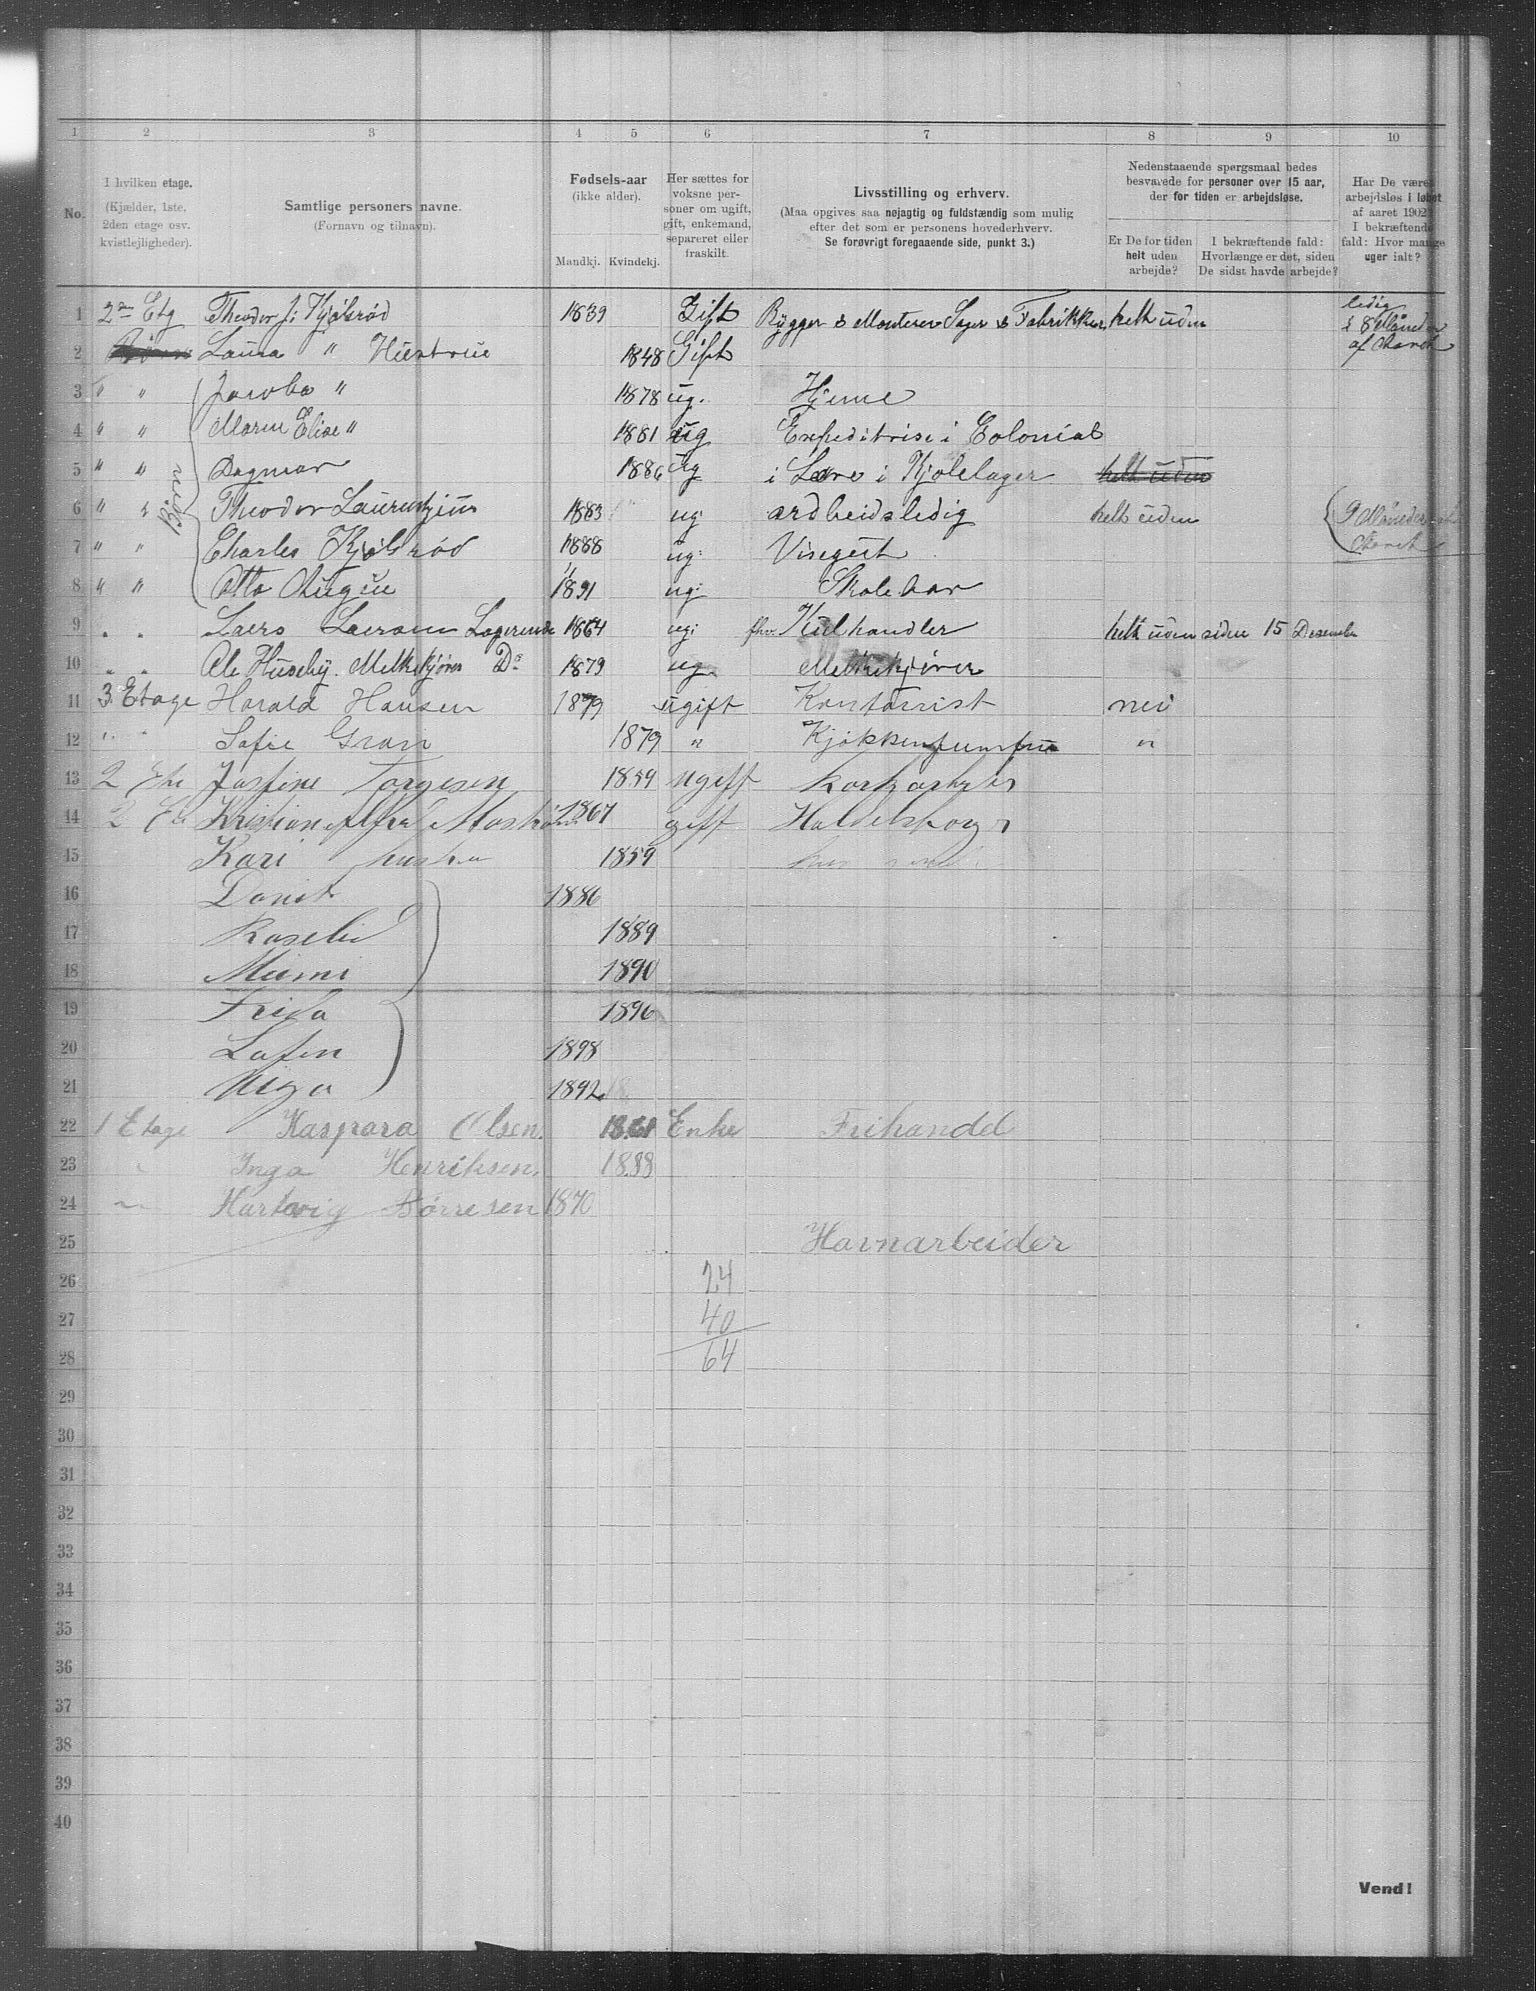 1 2 3 4 5 6 7 8 9 10
No.
I hvilken etage.
(Kjælder, 1ste,
2den etage osv.
kvistlejligheder).
Samtlige personers navne.
(Fornavn og tilnavn).
Fødsels-aar
(ikke alder).
Mandkj. Kvindekj.
Her sættes for
voksne per-
soner om ugift,
gift, enkemand,
separeret eller
fraskilt.
Livsstilling og erhverv.
(Maa opgives saa nøjagtig og fuldstændig som mulig
efter det som er personens hovederhverv.
Se forøvrigt foregaaende side, punkt 3.)
Nedenstaaende spørgsmaal bedes
besvarede for personer over 15 aar,
der for tiden er arbejdsløse.
Er De for tiden
helt uden
arbejde?
I bekræftende fald:
Hvorlænge er det, siden
De sidst havde arbejde?
Har De været
arbejdsløs i løbet
af aaret 1902?
I bekræftende
fald: Hvor mange
uger ialt?
1 2den Etg Theodor J. Kjølsrød 1839 Gift Bygger & Monterer Sager & Fabrikker helt uden ledig i 8 Maaneder af Aaret
2 Laura " Hustrue 1848 Gift
3 " " Jacoba " 1878 ug. Hjeme
4 " " Maren Elise " 1881 ug Expeditrise i Colonial
5 " " Dagmar 1886 ug i Lære i Kjolelager helt uden
6 " " Theodor 1883 ug ardbeidsledig helt uden 9 Maaneder Aaret
Børn
7 " " Charles Kjølsrød 1888 ug: Visegut
8 " " Otto August 1891 ug: Skolebar
9 " " Lars Larsen Logerende 1864 ug: fhv. Kulhandler helt uden siden 15 Desember
10 " " Ole Huseby. Melkekjører Do 1879 ug Melkekjører
11 3. Etage Harald Hansen 1879 ugift Kontorrist nei
12 " " Sofie Gran 1879 " Kjøkkenjumfru "
13 2 Etg Josfine Torgesen 1859 ugift
14 2 Kristian 1867 gift
15 Kari hustru 1859
16 1886
17 1889
18 Mimi 1890
19 Frida 1896
20 1898
21 1892
22 1 Etage Kaspara Olsen. 1861 Enke Frihandel
23 " Inga Henriksen. 1888
24 " Hartvig Børresen 1870
25 Havnarbeider
26 24
27 40
28 64
29
30
31
32
33
34
35
36
37
38
39
40
Vend!